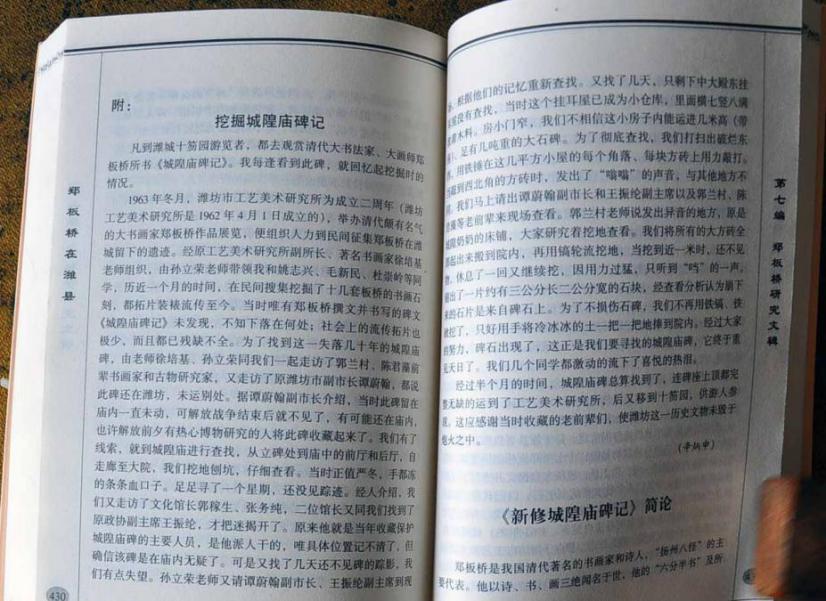 附：
挖掘城隍庙碑记
凡到潍城十笏园游览者，都去观赏清代大书法家、大画师郑
板桥所书《城隍庙碑记》。我每逢看到此碑，就回忆起挖掘时的
情况。
1963年冬月，潍坊市工艺美术研究所为成立二周年（潍坊
工艺美术研究所是1962年4月1日成立的），举办清代颇有名气
的大书画家郑板桥作品展览，便组织人力到民间征集郑板桥在潍
城留下的遗迹。经原工艺美术研究所副所长、著名书画家徐培基
老师组织，由孙立荣老师带领我和姚志兴、毛新民、杜崇岭等同
学，历近一个月的时间，在民间搜集挖掘了十几套板桥的书画石
刻，都拓片装裱流传至今。当时唯有郑板桥撰文并书写的碑文
《城隍庙碑记》未发现，不知下落在何处；社会上的流传拓片也
极少，而且都已残缺不全。为了找到这一失落几十年的城隍庙
碑，由老师徐培基、孙立荣同我们一起走访了郭兰村、陈君藻前
辈书画家和古物研究家，又走访了原潍坊市副市长谭蔚翰，都说
此碑还在潍坊，未运别处。据谭蔚翰副市长介绍，当时此碑留在
庙内一直未动，可解放战争结束后就不见了，有可能还在庙内，
也许解放前夕有热心博物研究的人将此碑收藏起来了。我们有了
线索，就到城隍庙进行查找，从立碑处到庙中的前厅和后厅，自
走廊至大院，我们挖地刨坑，仔细查看。当时正值严冬，手都冻
的条条血口子。足足寻了一个星期，还没见踪迹。经人介绍，我
们又走访了文化馆长郭稼生、张务纯，二位馆长又同我们找到了
原政协副主席王振纶，才把迷揭开了。原来他就是当年收藏保护
城隍庙碑的主要人员，是他派人干的，唯具体位置记不清了，但
确信该碑是在庙内无疑了。可是又找了几天还不见碑的踪影，我
们有点失望。孙立荣老师又请谭蔚翰副市长、王振纶副主席到现
430
郑板桥在潍县
根据他们的记忆重新查找。又找了几天，只剩下中大殿东挂
屋没有查找，当时这个挂耳屋已成为小仓库，里面横七竖八满
木料。房小门窄，我们不相信这小房子内能运进几米高（带
、足有几吨重的大石碑。为了彻底查找，我们打扫出破烂东
用铁锤在这几平方小屋的每个角落、每块方砖上用力敲打。
敲到西北角的方砖时，发出了“嗡嗡”的声音，与其他地方不
我们马上请出谭蔚翰副市长和王振纶副主席以及郭兰村、陈
藻等老前辈来现场查看。郭兰村老师说发出异音的地方，原是
城隍奶奶的床铺，大家研究着挖地查看。我们将所有的大方砖全
都起出来搬到院内，再用镐轮流挖地，当挖到近一米时，还不见
物，休息了一回又继续挖，因用力过猛，只听到“当”的一声，
出了一片约有三公分长二公分宽的石块，经查看分析认为崩下
来的石片是来自碑石上。为了不损伤石碑，我们不再用铁镐、铁
掀挖了，只好用手将冷冰冰的土一把一把地捧到院内。经过大家
的努力，碑石出现了，这正是我们要寻找的城隍庙碑，它终于重
见天日了。我们几个同学都激动的流下了喜悦的热泪。
经过半个月的时间，城隍庙碑总算找到了，连碑座上顶都完
整无缺的运到了工艺美术研究所，后又移到十笏园，供游人参
观，这应感谢当时收藏的老前辈们，使潍坊这一历史文物未毁于
炮火之中。
（辛炳申）
《新修城隍庙碑记》简论
郑板桥是我国清代著名的书画家和诗人，“扬州八怪”的主
要代表。他以诗、书、画三绝闻名于世，他的“六分半书”及所
第七编 郑板桥研究文辑